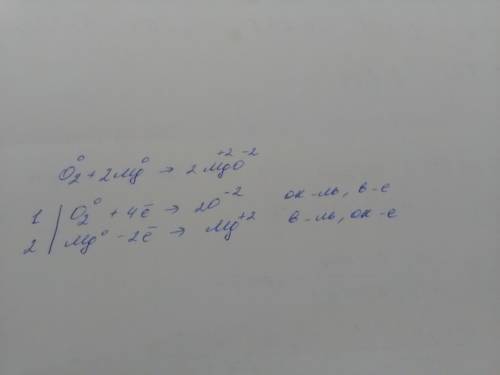 O₂⁰ + 2Mg⁰ → 2Mg⁺²O⁻²
1 | O₂⁰ + 4ē → 2O⁻² ок-ль, в-е
2 | Mg⁰ - 2ē → Mg⁺² в-ль, ок-е